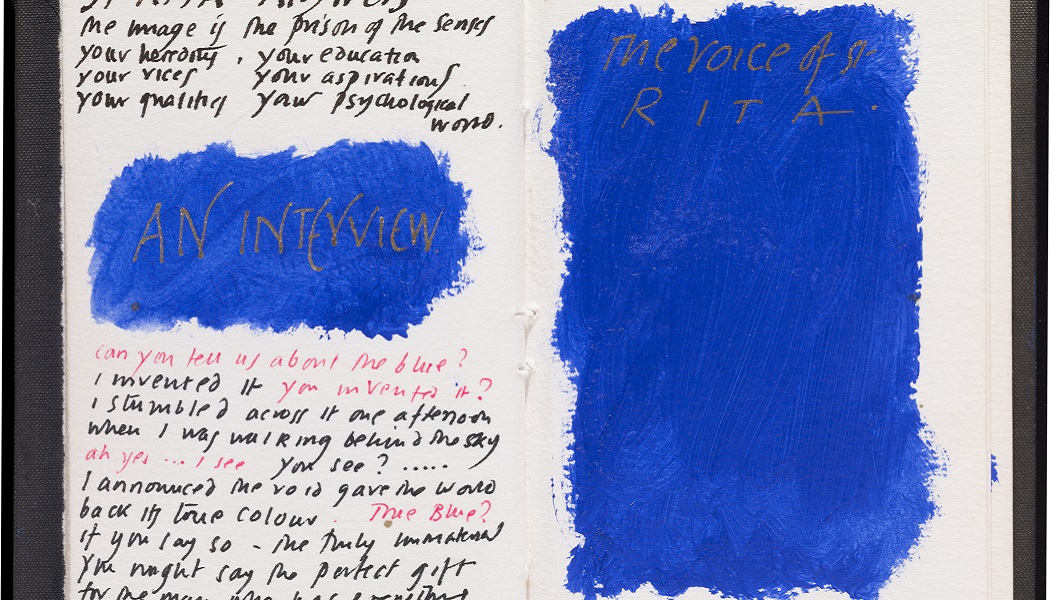 St RITA Answers
the image is the prison of the senses
your heredity , your education
your vices your aspirations.
your qualities your psychological
world.
AN INTERVIEW
can you tell us about the blue?
I invented it you invented it?
I stumbled across it one afternoon
when I was walking behind the sky
ah yes ... I see you see? .....
I announced the void gave the world
back its true colour. True Blue?
if you say so - the truly immaterial
you might say the perfect gift
for the man who has everything
The voice of St.
RITA.